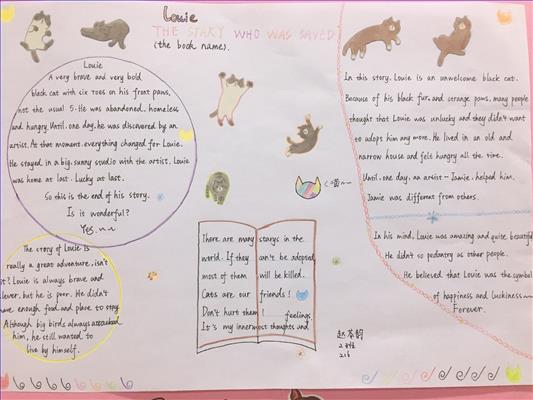 Louie
THE STARY WHO WAS SAVED
(the book name).
Louie
A very brave and very bold
black cat with six toes on his front paws,
not the usual 5. He was abandoned, homeless
and hungry. Until one day, he was discovered by an
artist. At that moment, everything changed for Louie.
He stayed in a big, sunny studio with the artist. Louie
was home at last. Lucky at last.
So this is the end of his story.
Is it wonderful?
Yes.
The story of Louie is
really a great adventure, isn't
it? Louie is always brave and
clever, but he is poor. He didn't
have enough food and place to stay
Although big birds always attacked
him, he still wanted to
live by himself.
There are many starys in the
world. If they can't be adopted,
most of them will be killed.
Cats are our friends!
Don't hurt them! feelings
It's my innermost thoughts and
<喵~~
In this story, Louie is an unwelcome black cat.
Because of his black fur, and strange paws, many people
thought that Louie was unlucky and they didn't want
to adopt him any more. He lived in an old and
narrow house and felt hungry all the time.
Until one day, an artist - Jamie, helped him.
Jamie was different from others.
In his mind, Louie was amazing and quite beautiful
He didn't so pedantry as other people.
He believed that Louie was the symbol
of happiness and luckiness
Forever.